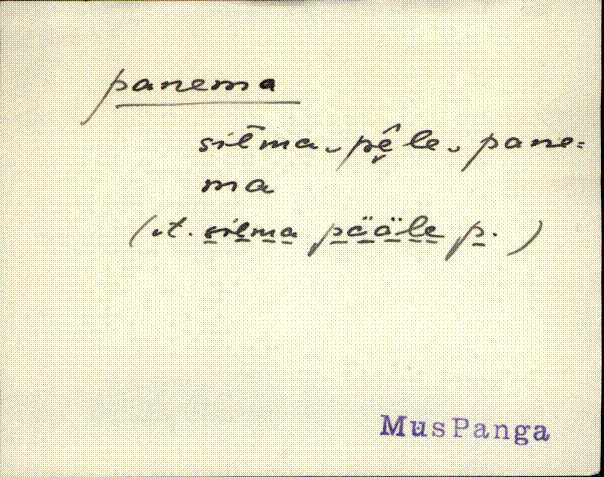 panema
silma‿pē̬le‿pane=
ma
(vt. silma pääle p.)
MusPanga